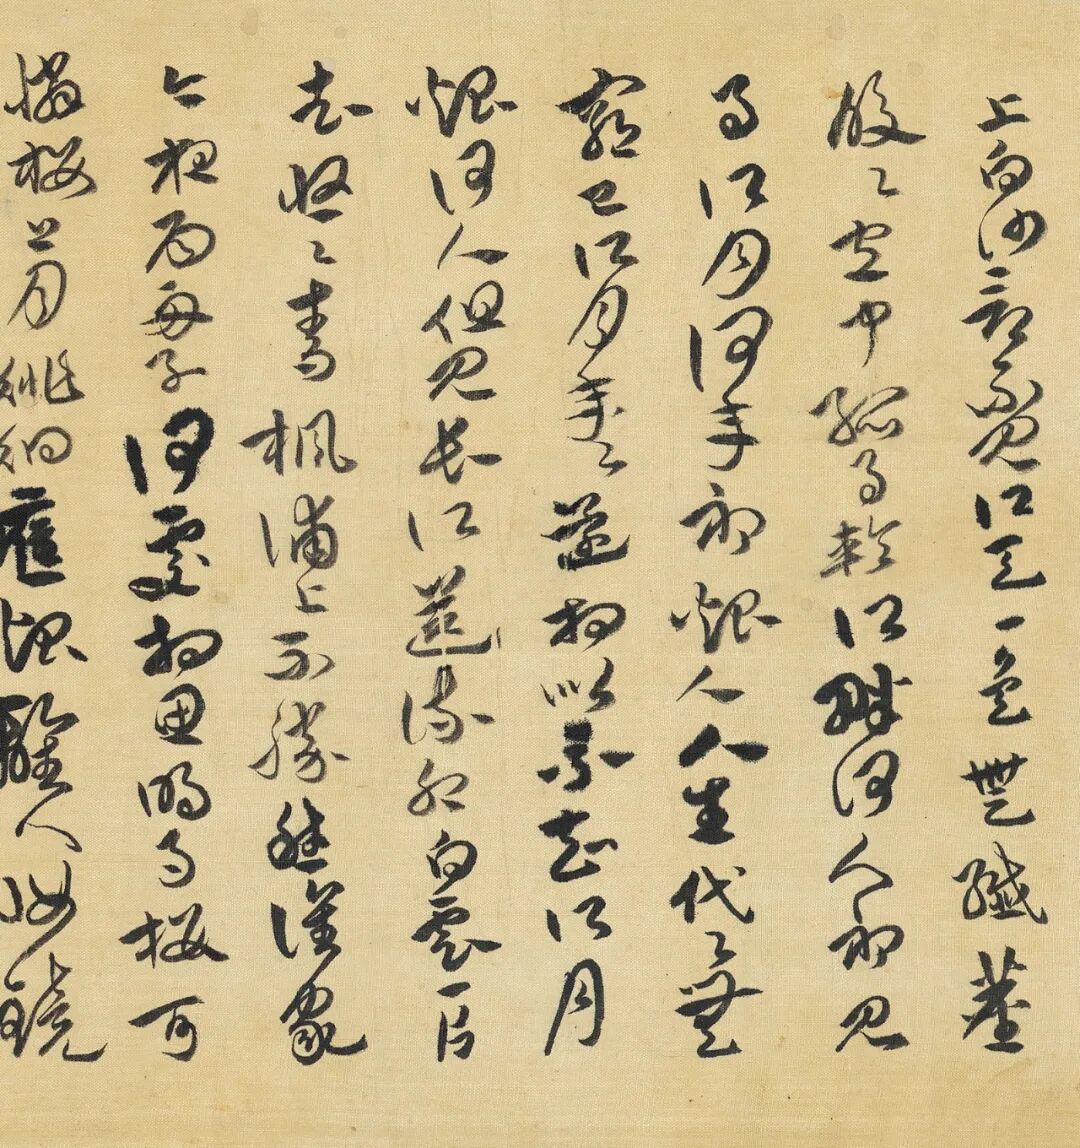 上白沙看不見江天一色無纖塵
皎皎空中孤月輪江畔何人初見
月江月何年初照人人生代代無
窮已江月年年望相似不知江月
照何人但見長江送流水白雲一片
去悠悠青楓浦上不勝愁誰家
今夜扁舟子何處相思明月樓可
憐樓上月徘徊應照離人妝鏡